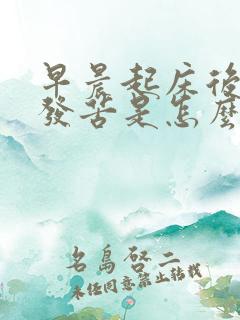 早晨起床後
發苦是怎麼
名島啓二
未经同意禁止转载